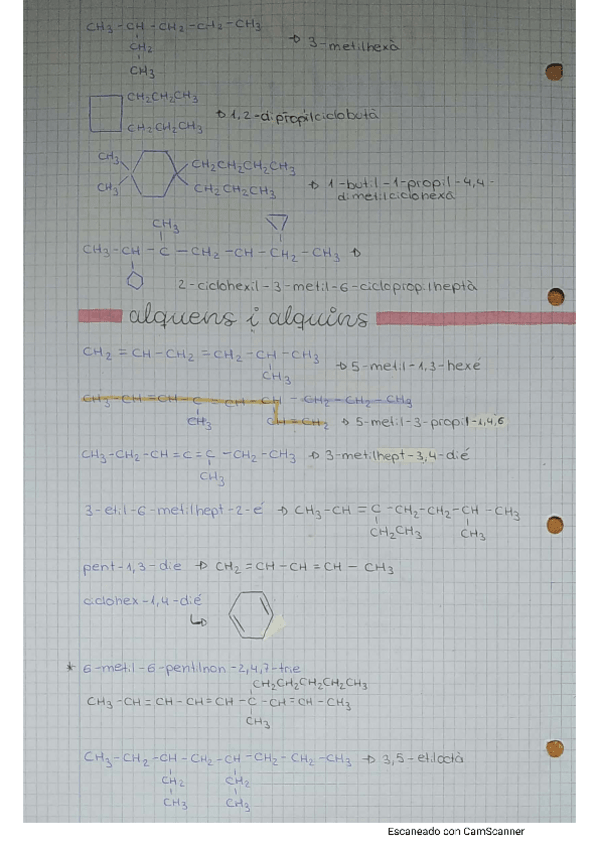 CH3 - CH - CH2 - CH2 - CH3
CH2
CH3
→ 3-metilhexà
CH2CH2CH3
CH2CH2CH3
→ 1,2-dipropilciclobutà
CH3
CH3
CH2CH2CH2CH3
CH2CH2CH3
→ 1-butil-1-propil-4,4-
dimetilciclohexà
CH3
CH3 - CH - C - CH2 - CH - CH2 - CH3 →
2-ciclohexil-3-metil-6-ciclopropilheptà
alquens i alquins
CH2 = CH - CH2 = CH2 - CH - CH3
CH3
→ 5-metil-1,3-hexé
CH3 - CH = CH - C = CH - CH - CH2 - CH2 - CH3
CH3
CH = CH2
→ 5-metil-3-propil-1,4,6
CH3 - CH2 - CH = C = C - CH2 - CH3 → 3-metilhept-3,4-dié
CH3
3-etil-6-metilhept-2-é → CH3 - CH = C - CH2 - CH2 - CH - CH3
CH2CH3 CH3
pent-1,3-die → CH2 = CH - CH = CH - CH3
ciclohex-1,4-dié
* 6-metil-6-pentilnon-2,4,7-trie
CH2CH2CH2CH2CH3
CH3 - CH = CH - CH = CH - C - CH = CH - CH3
CH3
CH3 - CH2 - CH - CH2 - CH - CH2 - CH2 - CH3 → 3,5-etiloctà
CH2 CH2
CH3 CH3
Escaneado con CamScanner